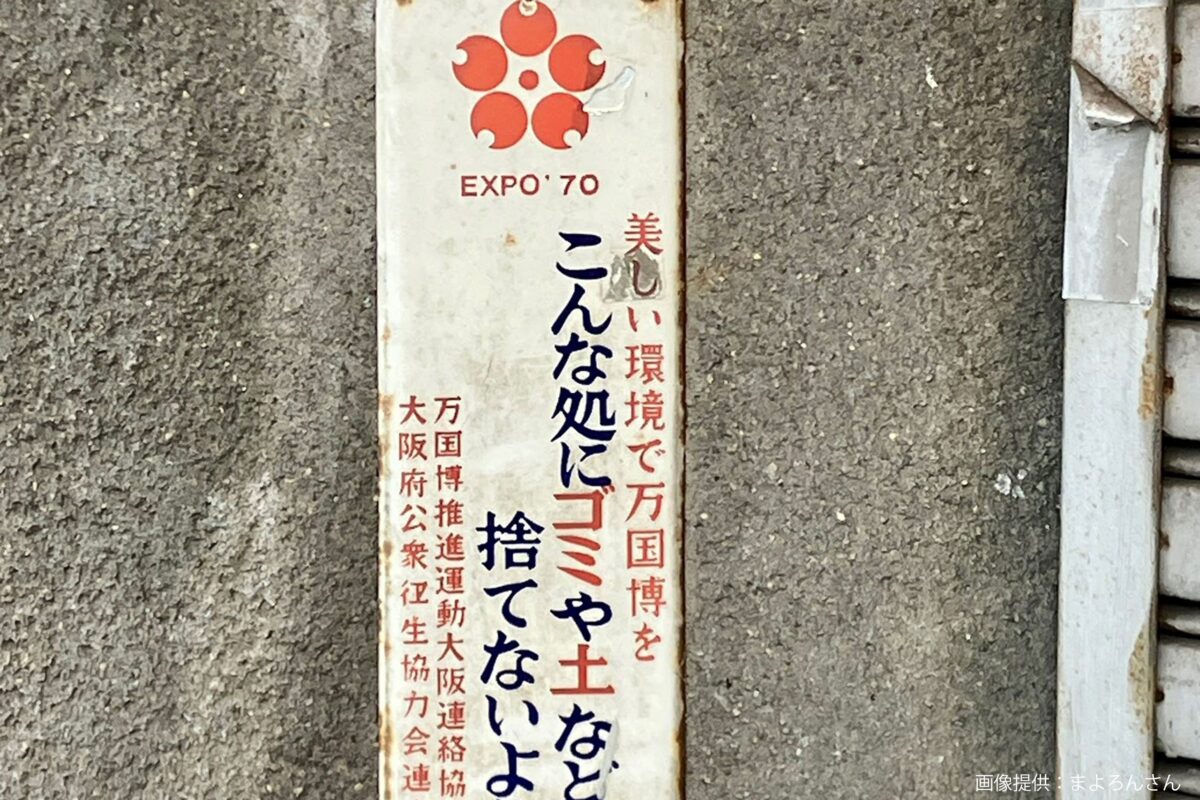 EXPO'70
美しい環境で万国博を
こんな処にゴミや土など
捨てないよ
万国博推進運動大阪連絡協
大阪府公衆衛生協力会連
画像提供：まよろんさん